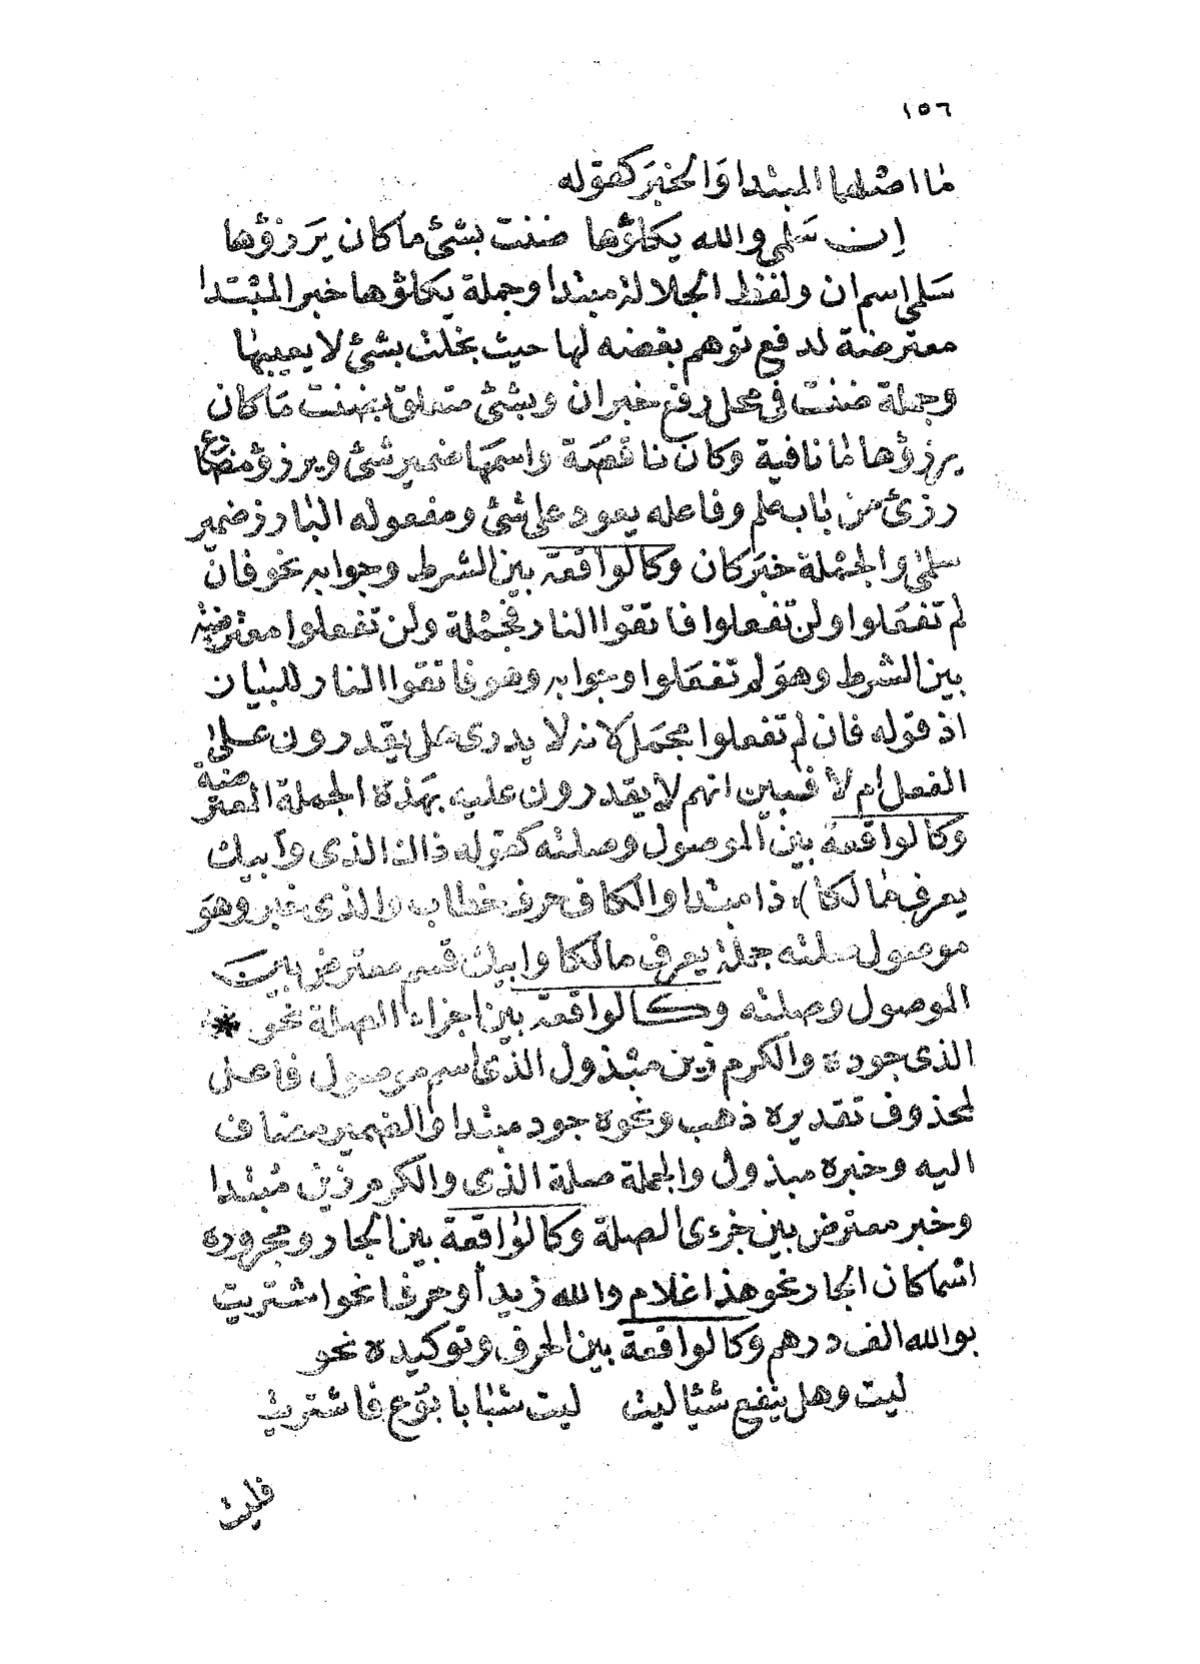 ١٥٦
ما اصلها المبتدا والخبر كقوله
إن سَلمى والله يكلؤها ضنت بشئ ما كان يَرزؤها
سَلمى اسم ان ولفظ الجلالة مبتدا وجملة يكلؤها خبر المبتدا
معترضة لدفع توهم بغضه لها حيث بخلت بشئ لا يعيبها
وجملة ضنت فى محل رفع خبر ان وبشئ متعلق بضنت مَا كان
يرزؤها ما نافية وكان ناقصَة واسمهَا ضمير شئ ويرزؤ مضَارع
رزئ من باب علم وفاعله يعود على شئ ومفعوله البارز ضمير
سلمى والجملة خبَر كان وكالواقعة بين الشرط وجوابه نحو فان
لم تفعَلوا ولن تفعلوا فاتقوا النار فجملة ولن تفعلوا معترضة
بين الشرط وهوَ لم تفعَلوا وجوابه وهو فاتقوا النار للبيان
اذ قوله فان لم تفعلوا مجمَل لانه لا يدرى هل يقدرون على
الفعل ام لا فبين انهم لا يقدرون عليه بهَذه الجملة المعترضة
وكالواقعة بين الموصول وصلته كقوله ذاك الذى وابيك
يعرف مالكا)، ذا مبتدا والكاف حرف خطاب والذى خبر وهوَ
موصول صلته جملة يعرف مالكا وابيك قسم معترض بين
الموصول وصلته وكالواقعة بين اجزاء الصلة نحو *
الذى جوده والكرم زين مبذول الذى اسم موصول فاعل
لمحذوف تقديره ذهب ونحوه جود مبتدا والضمير مضاف
اليه وخبره مبذول والجملة صلة الذى والكرم زين مُبتدا
وخبر معترض بين جزءى الصلة وكالواقعة بين الجار ومجروره
اسما كان الجار نحو هذا غلام والله زيد أو حرفا نحو اشتريت
بوالله الف درهم وكالواقعة بين الحرف وتوكيده نحو
ليت وهل ينفع شيئا ليت ليت شبابا بُوّع فاشتريت
فليت